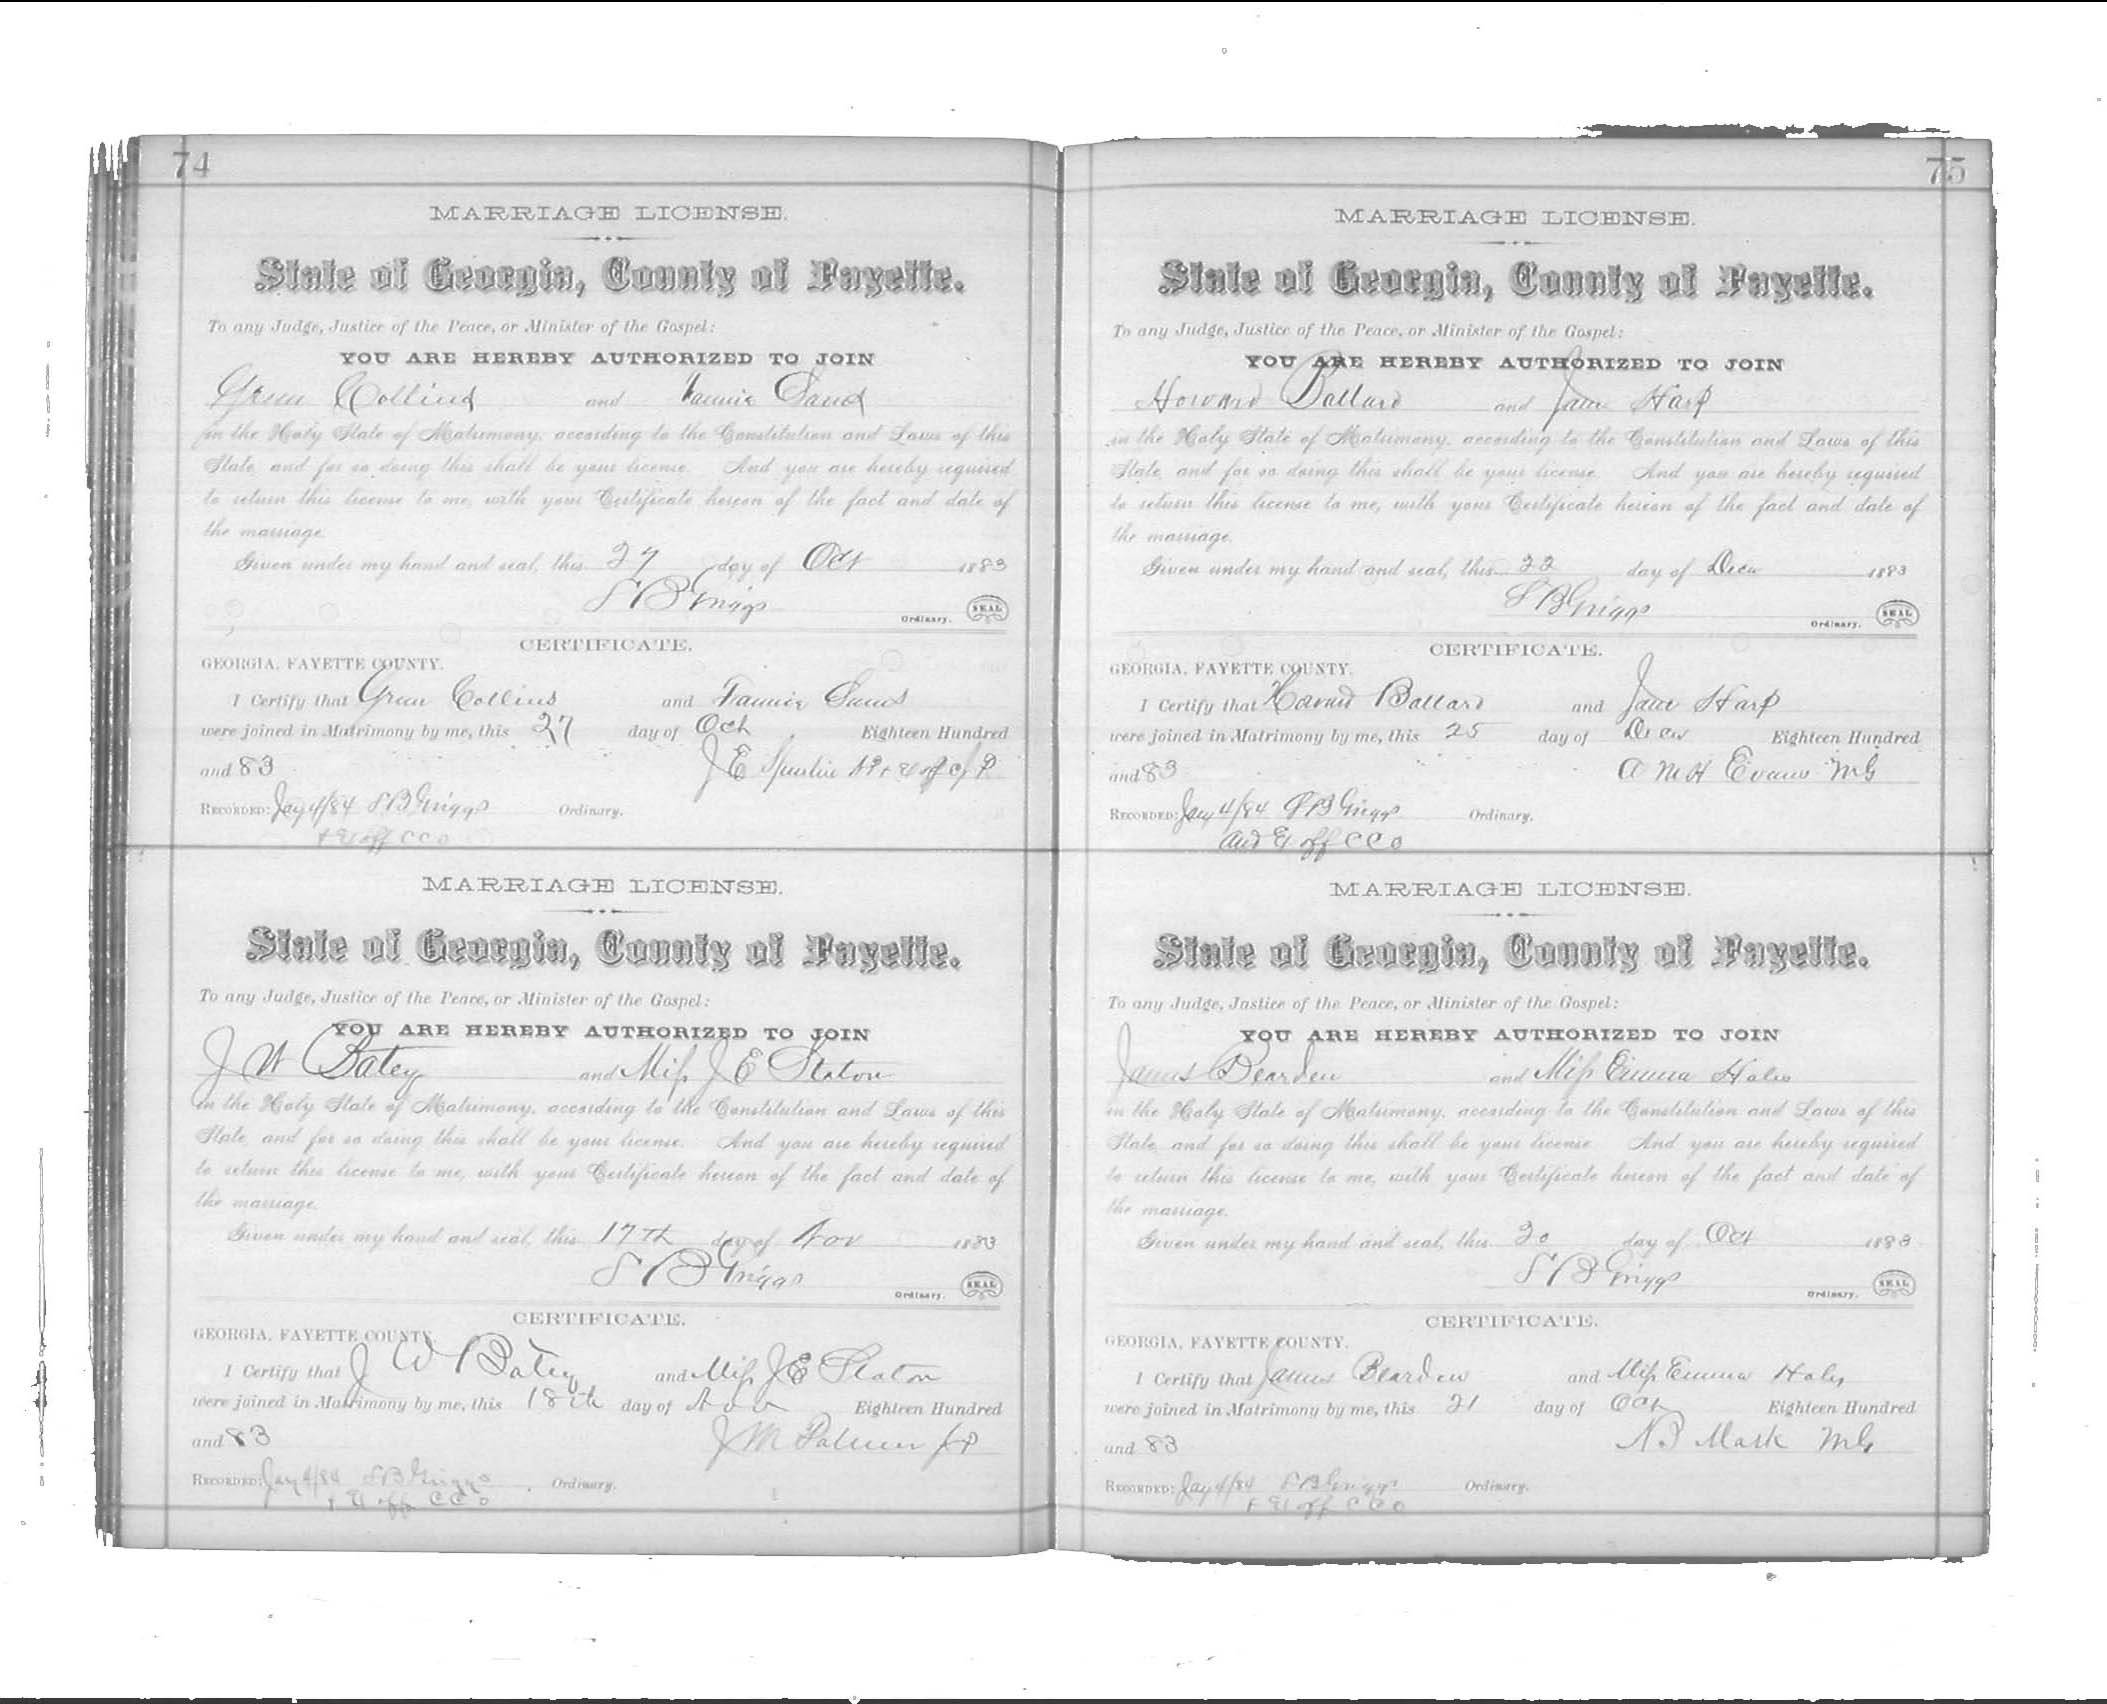 74
MARRIAGE LICENSE.
State of Georgia, County of Fayette.
To any Judge, Justice of the Peace, or Minister of the Gospel:
YOU ARE HEREBY AUTHORIZED TO JOIN
Green Collins and Fannie Sand
in the Holy State of Matrimony, according to the Constitution and Laws of this
State, and for so doing this shall be your license. And you are hereby required
to return this license to me, with your Certificate hereon of the fact and date of
the marriage.
Given under my hand and seal, this 27 day of Oct 1883
S B Griggs
Ordinary. SEAL
CERTIFICATE.
GEORGIA, FAYETTE COUNTY.
I Certify that Green Collins and Fannie Sands
were joined in Matrimony by me, this 27 day of Oct Eighteen Hundred
and 83 J E
RECORDED: Jany 4/84 S B Griggs Ordinary.
+ Ex off C C O
MARRIAGE LICENSE.
State of Georgia, County of Fayette.
To any Judge, Justice of the Peace, or Minister of the Gospel:
YOU ARE HEREBY AUTHORIZED TO JOIN
J W Batey and Miss J E Slaton
in the Holy State of Matrimony, according to the Constitution and Laws of this
State, and for so doing this shall be your license. And you are hereby required
to return this license to me, with your Certificate hereon of the fact and date of
the marriage.
Given under my hand and seal, this 17th day of Nov 1883
S B Griggs
Ordinary. SEAL
CERTIFICATE.
GEORGIA, FAYETTE COUNTY.
I Certify that J W Batey and Miss J E Slaton
were joined in Matrimony by me, this 18th day of Nov Eighteen Hundred
and 83 J M Palmer J P
RECORDED: Jany 4/84 S B Griggs Ordinary.
+ Ex off C C O
75
MARRIAGE LICENSE.
State of Georgia, County of Fayette.
To any Judge, Justice of the Peace, or Minister of the Gospel:
YOU ARE HEREBY AUTHORIZED TO JOIN
Howard Ballard and Jane Harp
in the Holy State of Matrimony, according to the Constitution and Laws of this
State, and for so doing this shall be your license. And you are hereby required
to return this license to me, with your Certificate hereon of the fact and date of
the marriage.
Given under my hand and seal, this 22 day of Decr 1883
S B Griggs
Ordinary. SEAL
CERTIFICATE.
GEORGIA, FAYETTE COUNTY.
I Certify that Howard Ballard and Jane Harp
were joined in Matrimony by me, this 25 day of Decr Eighteen Hundred
and 83 A M H Evans M G
RECORDED: Jany 4/84 S B Griggs Ordinary.
and Ex off C C O
MARRIAGE LICENSE.
State of Georgia, County of Fayette.
To any Judge, Justice of the Peace, or Minister of the Gospel:
YOU ARE HEREBY AUTHORIZED TO JOIN
James Bearden and Miss Emma Hales
in the Holy State of Matrimony, according to the Constitution and Laws of this
State, and for so doing this shall be your license. And you are hereby required
to return this license to me, with your Certificate hereon of the fact and date of
the marriage.
Given under my hand and seal, this 20 day of Oct 1883
S B Griggs
Ordinary. SEAL
CERTIFICATE.
GEORGIA, FAYETTE COUNTY.
I Certify that James Bearden and Miss Emma Hales
were joined in Matrimony by me, this 21 day of Oct Eighteen Hundred
and 83 Mask M G
RECORDED: Jany 4/84 S B Griggs Ordinary.
+ Ex off C C O